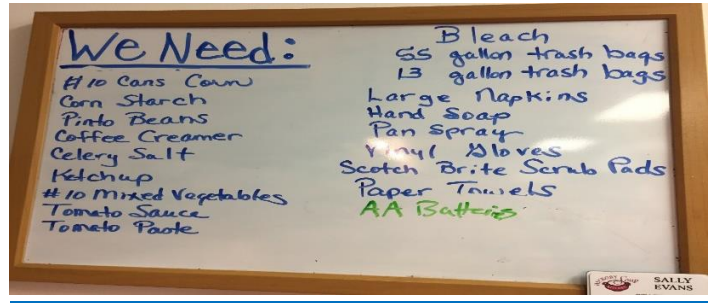 We Need:
#10 Cans Corn
Corn Starch
Pinto Beans
Coffee Creamer
Celery Salt
Ketchup
#10 Mixed Vegetables
Tomato Sauce
Tomato Paste
Bleach
55 gallon trash bags
13 gallon trash bags
Large Napkins
Hand Soap
Pan Spray
Vinyl Gloves
Scotch Brite Scrub Pads
Paper Towels
AA Batteries
SALLY
EVANS